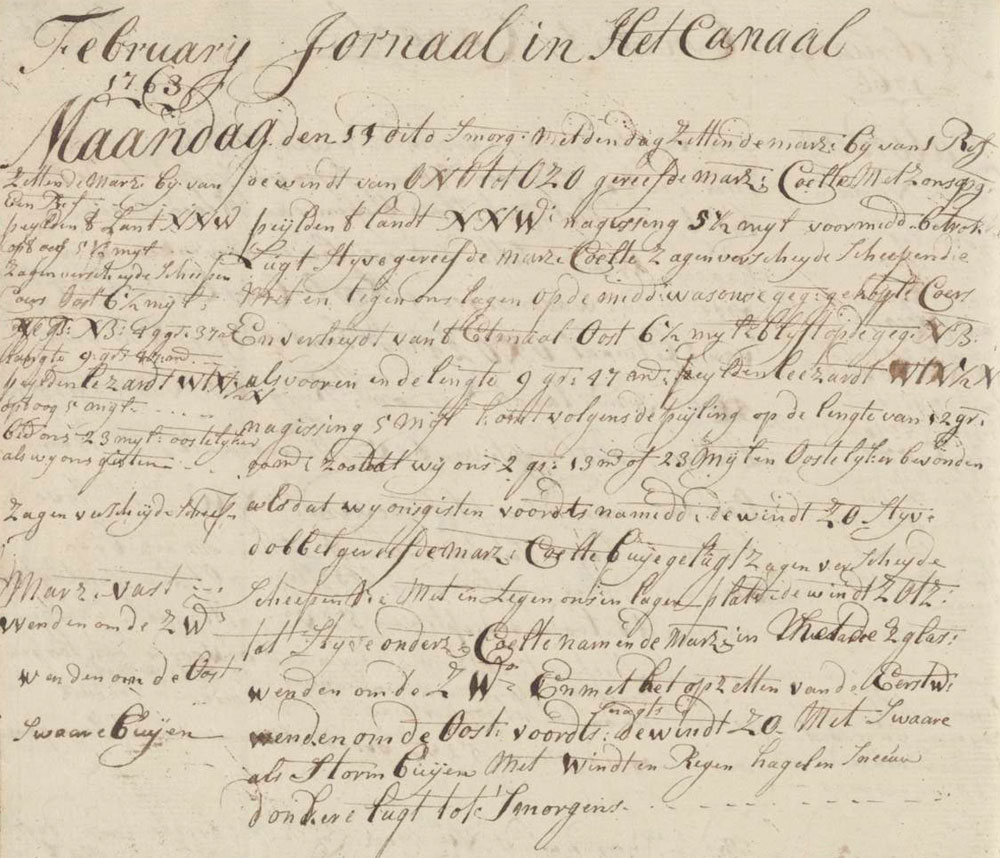 February Jornaal in Het Canaal
1763
Maandag den 14 dito Smorg: Met den dag Zetten de marz: by van 1 Reff
Zetten de Marz: by van
Een Ref
de windt van ONO tot OZO gereefde marz: Coelte Met Zons opg:
peijlden 't Lant NNW
peijlden 't landt NNW: nagissing 5½ myt voormidd: betrok
op 't oog 5½ myt
Lugt Styve gereefde Marz: Coelte Zagen verscheyde Scheepen die
Zagen verscheyde Scheepen
Coers Oost 6½ myt:
Met en tegen ons lagen op de midd: was onse geg: gekoyte Coers
En verheyt van 't Etmaal Oost 6½ myt: blyft op de geg: NB:
Langte 9 gr: 47 m:
peylden Lezardt WtN½N
als vooren in de lengte 9 gr: 47 m: peylden Leezardt WtN½N
op 't oog 5 myt:
nagissing 5 myt komt volgens de peijling op de lengte van 12 gr:
bevond ons 23 myt: oostelyker
als wy ons gisten
zoo dat wij ons 2 gr: 13 m of 23 Mylen Oostelyker bevonden
Zagen verscheyde Scheep:
als dat wy ons gisten voordts namidd: de windt ZO Styve
dobbelgereefde Marz: Coelte buijege lugt Zagen verscheyde
Marz: vast
Scheepen die Met en Tegen ons en lagen platv: de windt ZOtZ:
wenden om de ZW
tot Styve onderz: Coelte namen de Marz: in 2 glas:
wenden om de Oost
wenden om de ZW: En met het opzetten van de Eerstw:
Swaare Buijen
wenden om de Oost: voordts: Snagts de windt ZO Met Swaare
als Storm buijen Met windt en Regen hagel en Sneeuw
donkere lugt tot Smorgens